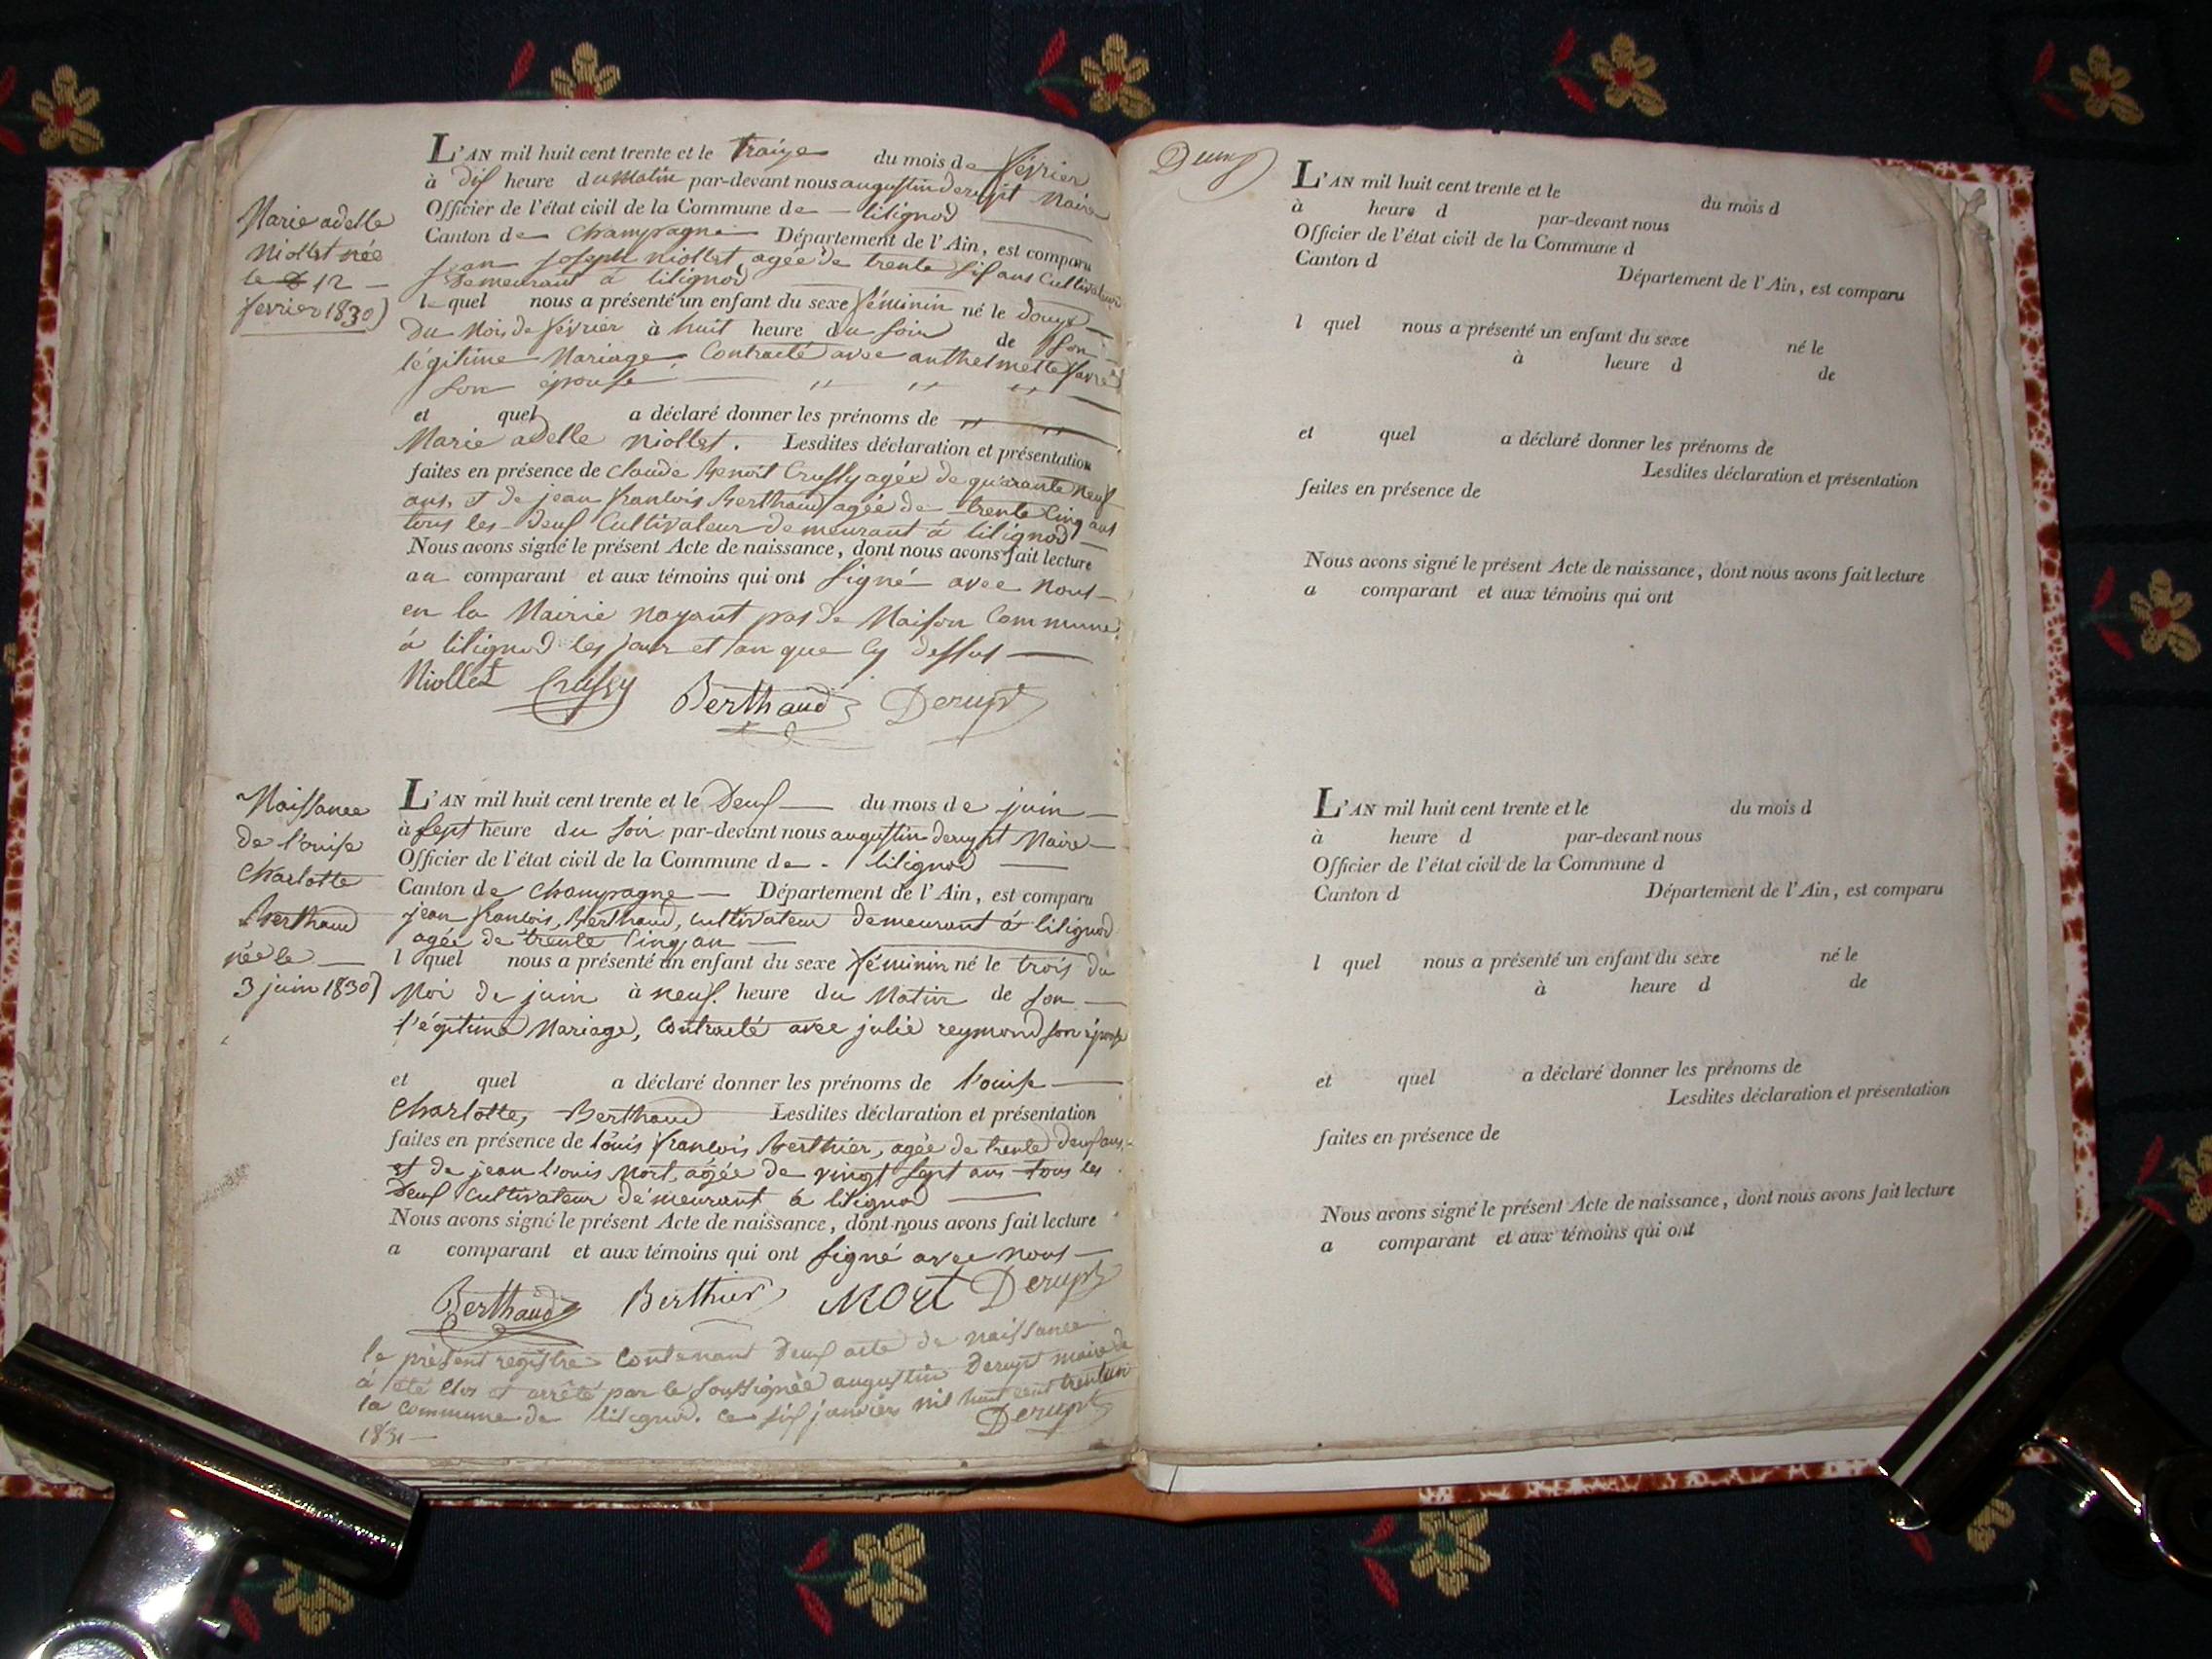 Marie adelle
Niollet née
le 12
fevrier 1830
L'AN mil huit cent trente et le traize du mois de février
à dix heure du Matin par-devant nous augustin derupt Maire
Officier de l'état civil de la Commune de lilignod
Canton de Champagne Département de l'Ain, est comparu
jean joseph niollet, agée de trente six ans Cultivateur
Demeurant à lilignod
lequel nous a présenté un enfant du sexe féminin né le douze
Du Mois de février à huit heure du soir de son
légitime Mariage, Contracté avec anthelmette
son épouse
et quel a déclaré donner les prénoms de
Marie adelle niollet. Lesdites déclaration et présentation
faites en présence de Claude Benoit Crussy agée de quarante neuf
ans, et de jean francois Berthaud agée de trente Cinq ans
tous les deux Cultivateur demeurant à lilignod
Nous avons signé le présent Acte de naissance, dont nous avons fait lecture
au comparant et aux témoins qui ont signé avec nous
en la Mairie nayant pas de Maison Commune
à lilignod les jour et an que Cy dessus
Niollet Crussy Berthaud Derupt
Naissance
de l'ouise
Charlotte
Berthaud
née le
3 juin 1830
L'AN mil huit cent trente et le Deux du mois de juin
à sept heure du soir par-devant nous augustin derupt Maire
Officier de l'état civil de la Commune de lilignod
Canton de Champagne Département de l'Ain, est comparu
jean francois, Berthaud, cultivateur demeurant à lilignod
agée de trente Cinq an
l quel nous a présenté un enfant du sexe féminin né le trois du
Moi de juin à neuf heure du Matin de son
l'égitime Mariage, Contracté avec julie reymond son épouse
et quel a déclaré donner les prénoms de l'ouise
Charlotte, Berthaud Lesdites déclaration et présentation
faites en présence de louis francois Berthier, agée de trente deux ans,
et de jean l'ouis Mort, agée de vingt sept ans tous les
Deux Cultivateur demeurant à lilignod
Nous avons signé le présent Acte de naissance, dont nous avons fait lecture
a comparant et aux témoins qui ont signé avec nous
Berthaud Berthier MOrt Derupt
le présent registre Contenant Deux acte de naissance
a été Clos et arrêté par le soussignée augustin Derupt maire de
la Commune de lilignod. Ce six janvier mil huit cent trentun
1831 Derupt
L'AN mil huit cent trente et le du mois d
à heure d par-devant nous
Officier de l'état civil de la Commune d
Canton d Département de l'Ain, est comparu
l quel nous a présenté un enfant du sexe né le
à heure d de
et quel a déclaré donner les prénoms de
Lesdites déclaration et présentation
faites en présence de
Nous avons signé le présent Acte de naissance, dont nous avons fait lecture
a comparant et aux témoins qui ont
L'AN mil huit cent trente et le du mois d
à heure d par-devant nous
Officier de l'état civil de la Commune d
Canton d Département de l'Ain, est comparu
l quel nous a présenté un enfant du sexe né le
à heure d de
et quel a déclaré donner les prénoms de
Lesdites déclaration et présentation
faites en présence de
Nous avons signé le présent Acte de naissance, dont nous avons fait lecture
a comparant et aux témoins qui ont